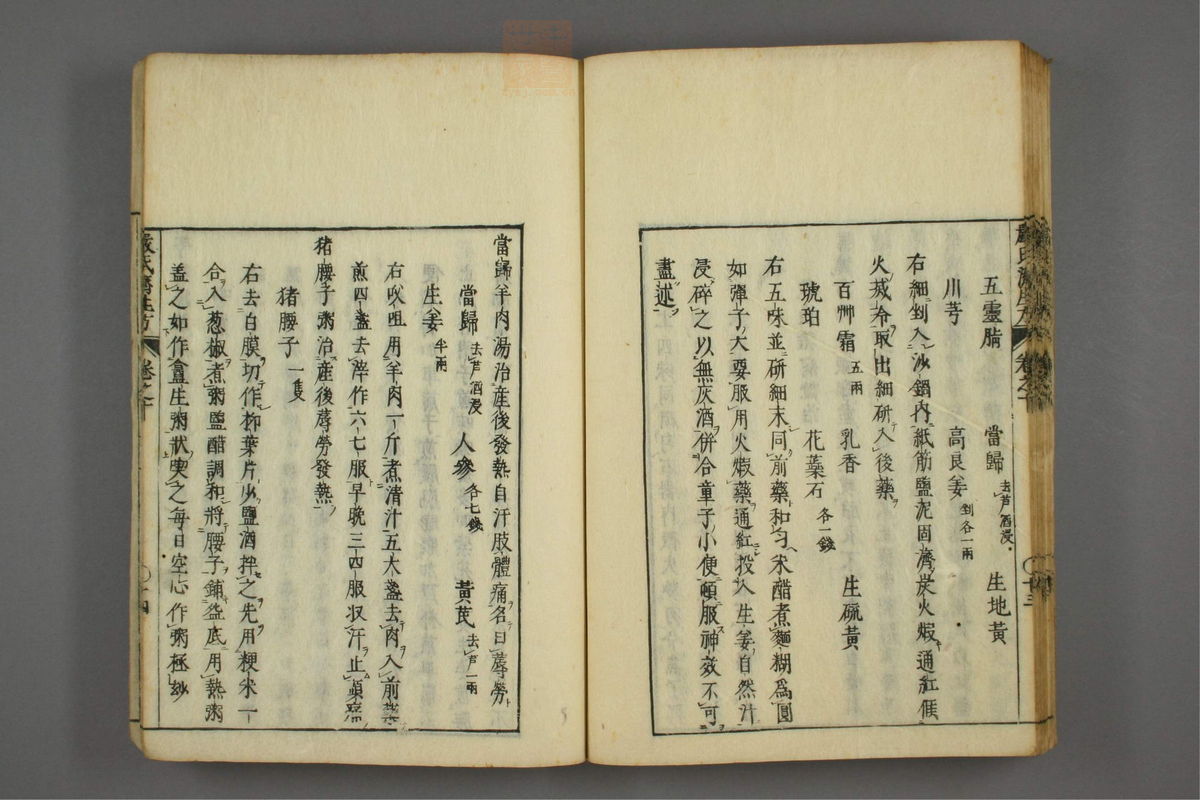 五靈脂 當歸去芦酒浸 生地黃
川芎 高良姜剉各一兩
右細剉入沙鍋內紙筋鹽泥固濟炭火煆通紅候
火滅冷取出細研入後藥
百艸霜五兩 乳香 生硫黃
琥珀 花蘂石各一錢
右五味並研細末同前藥和勻米醋煮麵糊為圓
如彈子大要服用火煆藥通紅投入生姜自然汁
浸碎之以無灰酒併合童子小便頓服神效不可
盡述
當歸羊肉湯治産後發熱自汗肢體痛名曰蓐勞
當歸去芦酒浸 人參各七錢 黃芪去芦一兩
生姜半兩
右㕮咀用羊肉一斤煮清汁五大盞去肉入前藥
煎四盞去滓作六七服早晚三四服
猪腰子粥治産後蓐勞發熱
猪腰子一隻
右去白膜切作柳葉片少鹽酒拌之先用粳米一
合入葱椒煮粥鹽醋調和將腰子鋪盆底用熱粥
盖之如作盦生粥狀每日空心作粥極妙
嚴氏濟生方 卷之十 十四